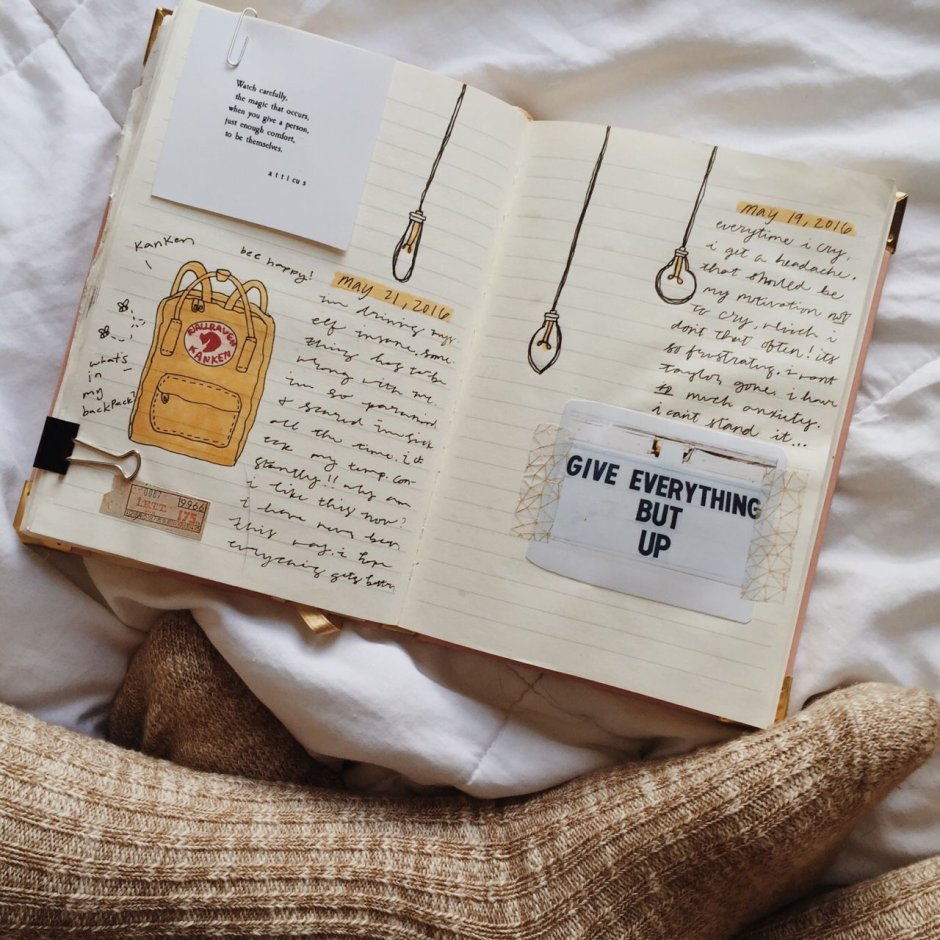 Watch carefully,
the magic that occurs,
when you give a person,
just enough comfort,
to be themselves.
atticus
Kanken
bee happy!
what's
in
my
backpack?
FJALLRAVEN
KANKEN
0087
LETT
175
19966
may 21, 2016
im driving my
self insane. some
thing has to be
wrong with me.
im so paranoid
& scared im sick
all the time. i ck
ck my temp con-
stantly!! why am
i like this now?
i have never been
this way. i hope
everything gets better
may 19, 2016
everytime i cry,
i get a headache.
that should be
my motivation not
to cry, which i
don't that often! its
so frustrating. i want
taylor gone. i have
so much anxiety.
i cant stand it...
GIVE EVERYTHING
BUT
UP